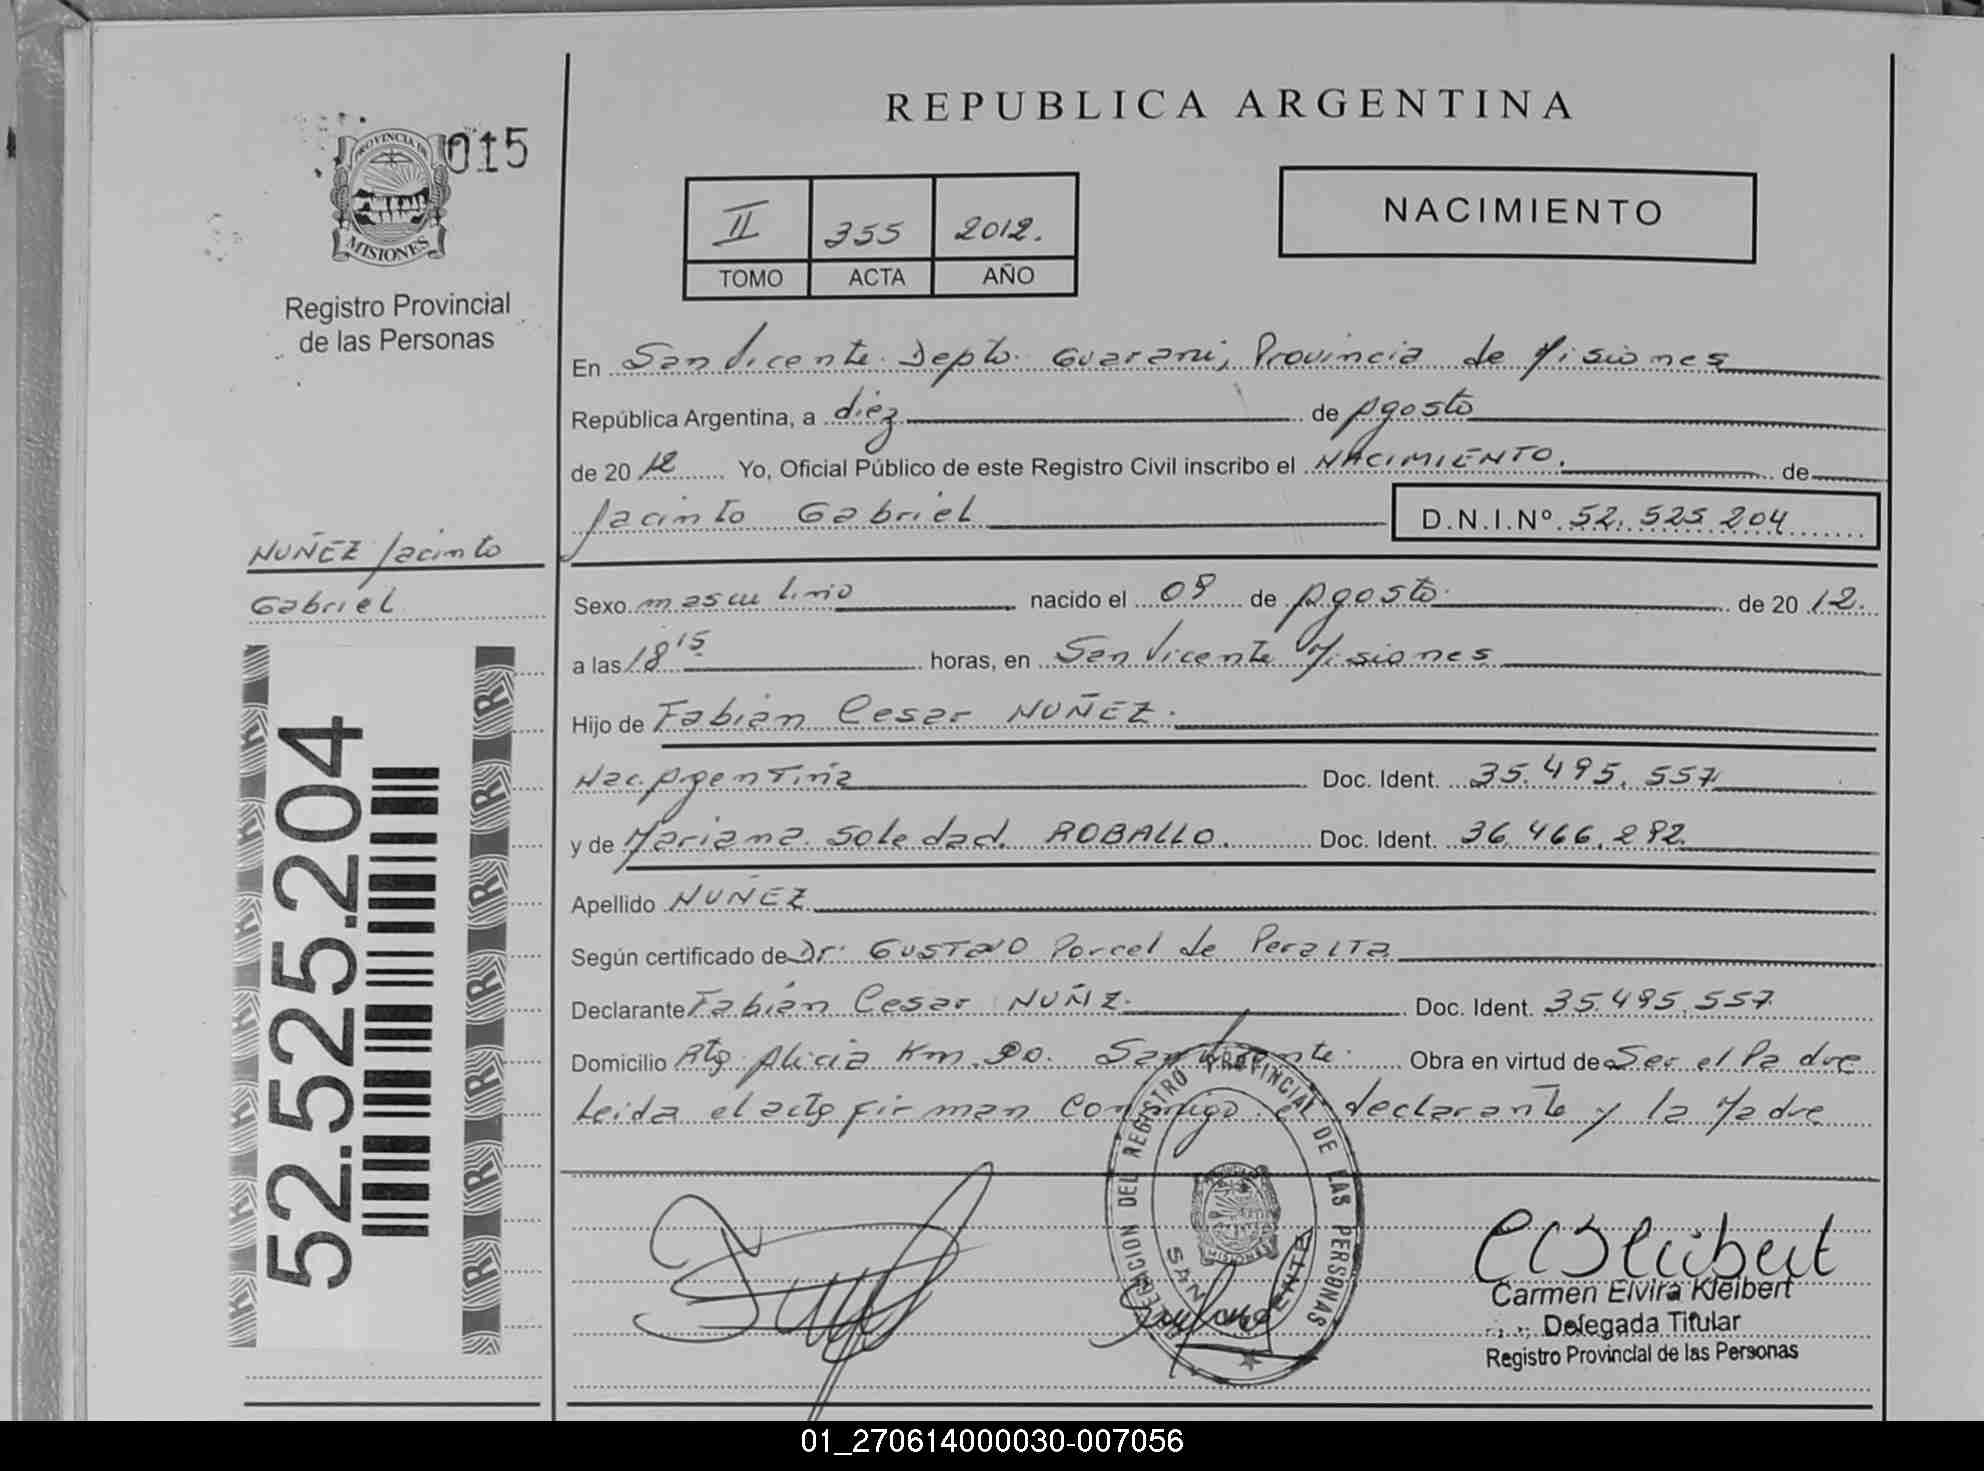 REPUBLICA ARGENTINA
015
PROVINCIA DE
MISIONES
Registro Provincial
de las Personas
II 355 2012.
TOMO ACTA AÑO
NACIMIENTO
En San Vicente Depto. Guarani, Provincia de Misiones
República Argentina, a diez de Agosto
de 20 12 Yo, Oficial Público de este Registro Civil inscribo el NACIMIENTO. de
Jacinto Gabriel D.N.I.Nº 52.525.204
NUÑEZ Jacinto
Gabriel
52.525.204
Sexo masculino nacido el 09 de Agosto de 20 12.
a las 18 15 horas, en San Vicente Misiones
Hijo de Fabián Cesar NUÑEZ.
Nac. Argentina Doc. Ident. 35.495.557
y de Mariana Soledad ROBALLO. Doc. Ident. 36.466.292
Apellido NUÑEZ
Según certificado de Dr. GUSTAVO Porcel de Peralta
Declarante Fabián Cesar NUÑZ. Doc. Ident. 35.495.557
Domicilio Rta. Alicia Km. 90. San Vicente. Obra en virtud de Ser el Padre
Leida el acta firman conmigo el declarante y la Madre
DELEGACION DEL REGISTRO PROVINCIAL DE LAS PERSONAS
SAN VICENTE
MISIONES
Carmen Elvira Kleibert
Delegada Titular
Registro Provincial de las Personas
01_270614000030-007056